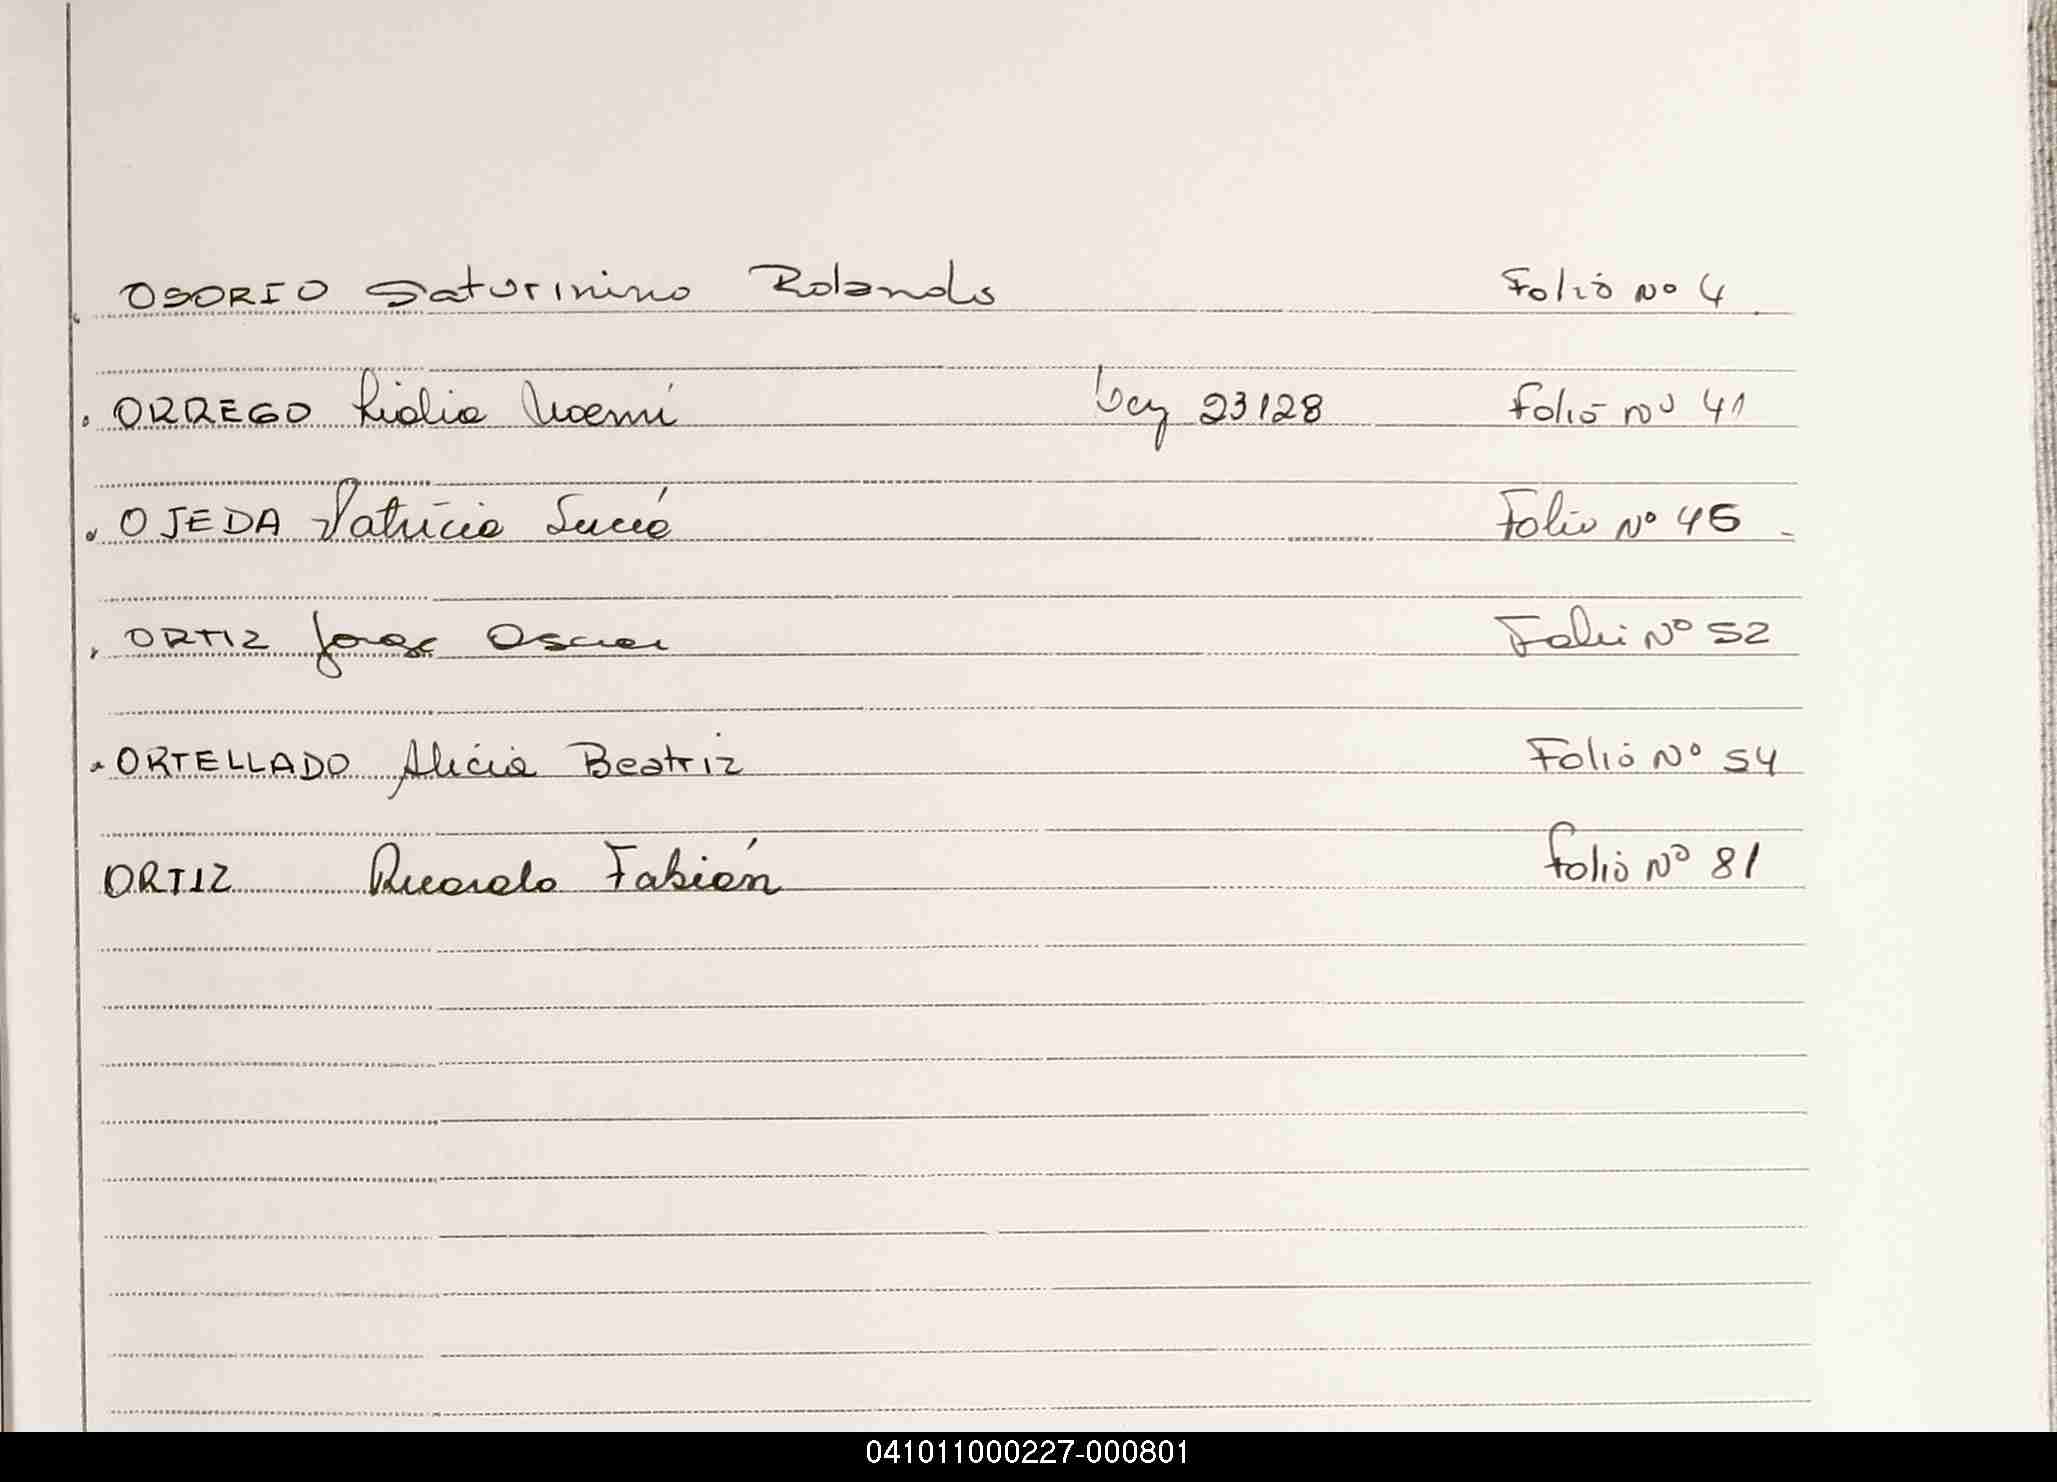 OSORIO Saturinino Rolando Folio Nº 4
ORREGO Lidia Noemí Ley 23128 Folio nº 41
OJEDA Patricia Lucía Folio Nº 45
ORTIZ Jorge Oscar Folio Nº 52
ORTELLADO Alicia Beatriz Folio Nº 54
ORTIZ Ricardo Fabián Folio Nº 81
041011000227-000801